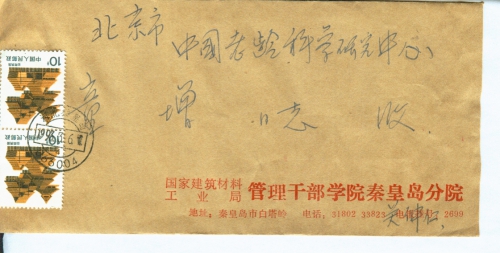 北京市
中国老龄科学研究中心
章 增 同志 收
国家建筑材料
工业局
管理干部学院秦皇岛分院
地址：秦皇岛市白塔岭 电话：31002 33823 电传号 2609
10分
中国人民邮政
10分
中国人民邮政